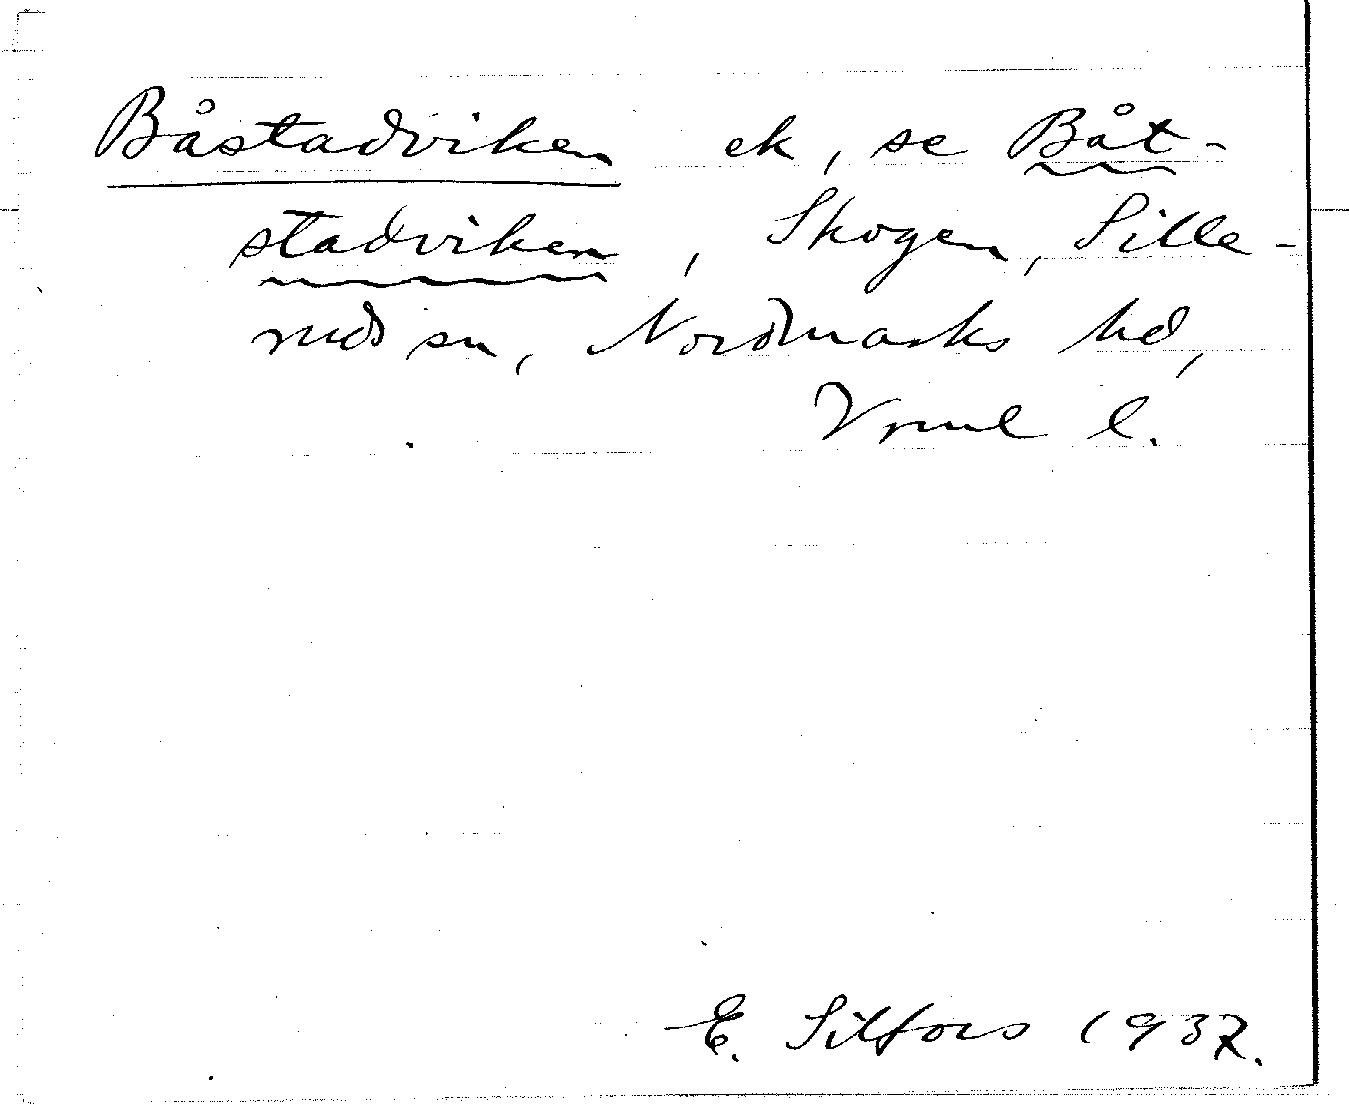 Båstadviken ek, se Båt-
stadviken, Skogen, Sille-
ruds sn, Nordmarks hd,
Vrml l.
E. Silfors 1937.